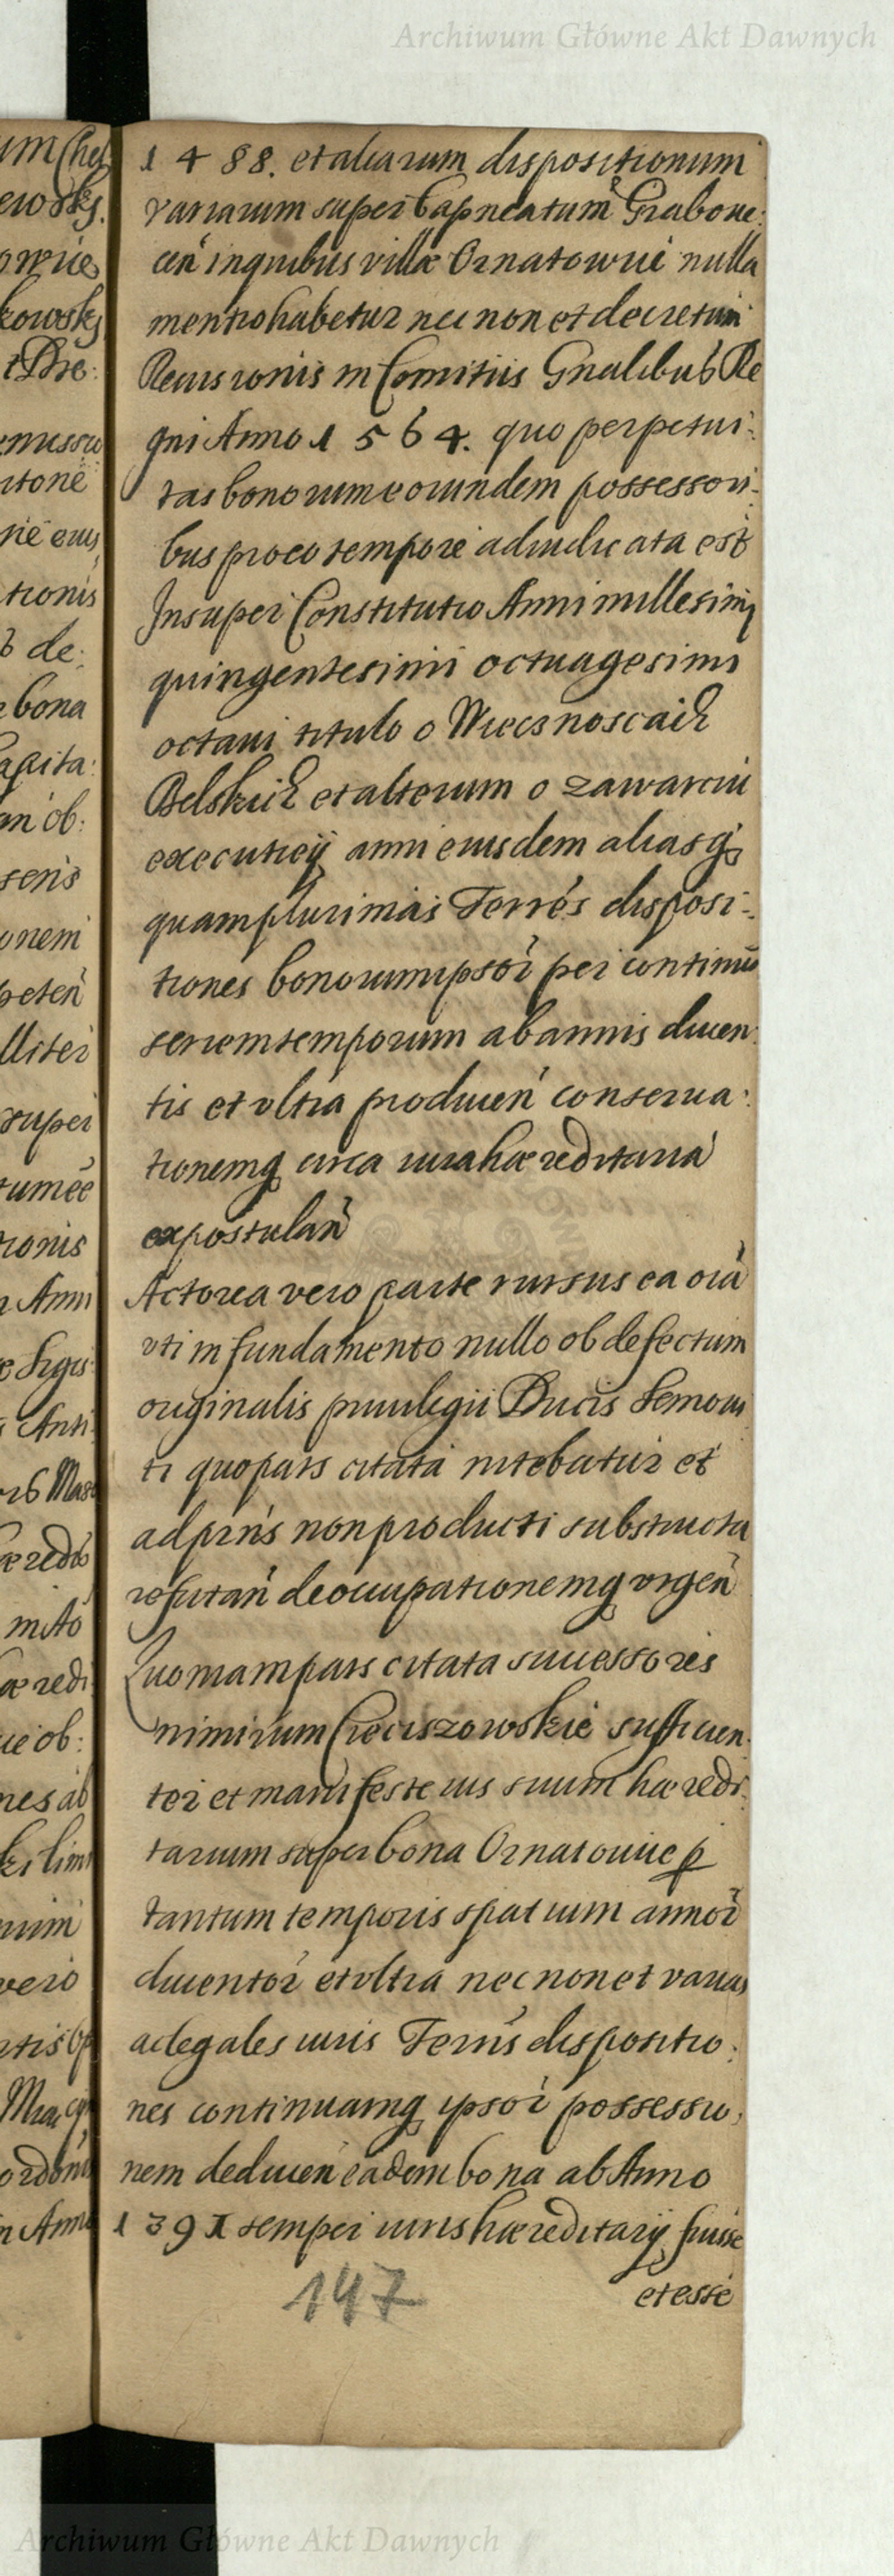 Archiwum Główne Akt Dawnych
1488. et aliarum dispositionum
variarum super Capneatum Graboue:
cen̄ in quibus villæ Ornatowici nulla
mentio habetur nec non et decretum
Recursionis in Comitiis Gn̄alibus Re
gni Anno 1564. quo perpetui:
tas bonorum eorundem possessori:
bus pro eo tempore adiudicata est
Insuper Constitutio Anni millesimi
quingentesimi octuagesimi
octaui titulo o Wiecznoscach
Belskich et alterum o zawarciu
executiey anni eiusdem aliasq
quamplurimas Terres disposi:
tiones bonorum ipsor̄ per continuū
seriem temporum ab annis ducen:
tis et vltra producen̄ conserua:
tionemq circa iura hæreditaria
expostulan̄
Actorea vero parte rursus ea oīa
vti in fundamento nullo ob defectum
originalis priuilegii Ducis Semoui
ti quo pars citata nitebatur et
ad prn̄s non producti substructa
refutan̄ deoccupationemq vrgen̄
Quoniam pars citata successores
nimirum Cieciszowskie sufficien:
ter et manifeste ius suum hæredi:
tarium super bona Ornatouice p
tantum temporis spatium annor̄
ducentor̄ et vltra nec non et varias
ac legales iuris Terrīs dispositio:
nes continuamq ipsor̄ possessio:
nem deducen̄ eadem bona ab Anno
1391 semper iuris hæreditarij fuisse
et esse
147
Archiwum Główne Akt Dawnych